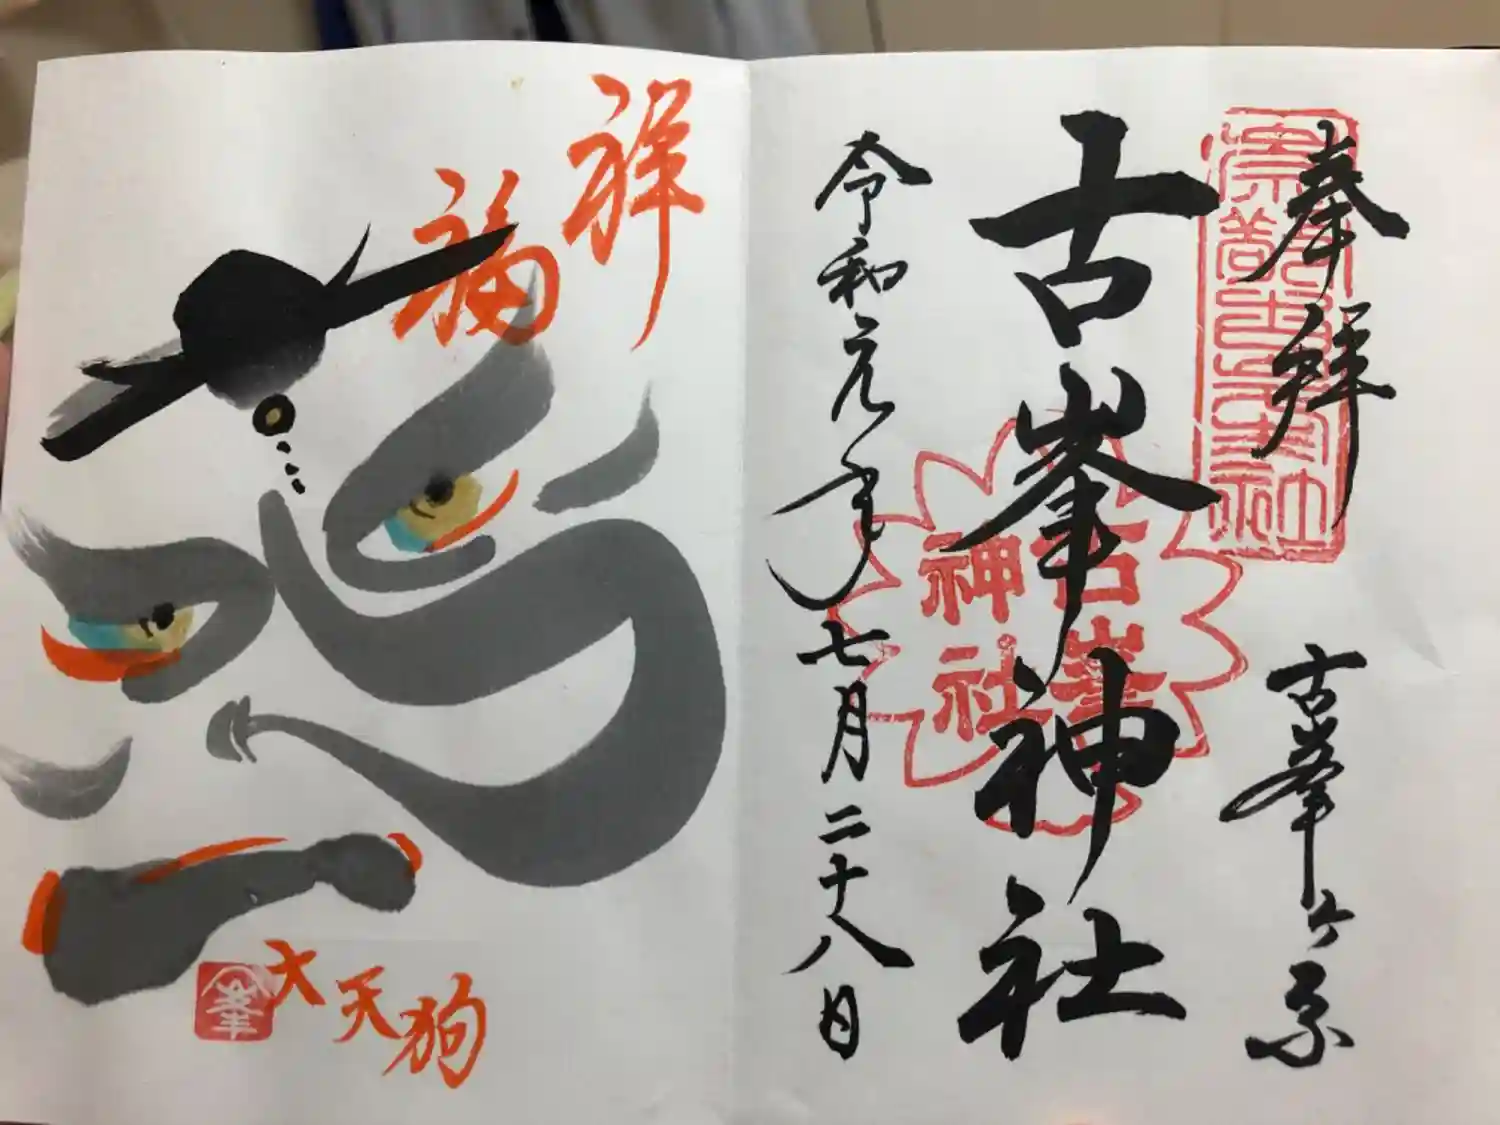 奉拝
古峯ヶ原
古峯神社
古峯
神社
令和元年七月二十八日
祥福
大天狗
峯